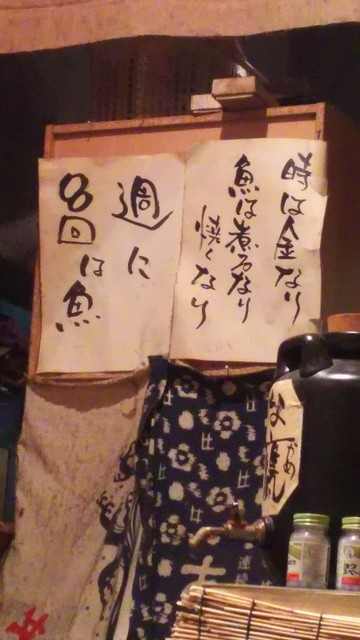 時は金なり
魚は煮るなり
焼くなり
週に
8回は魚